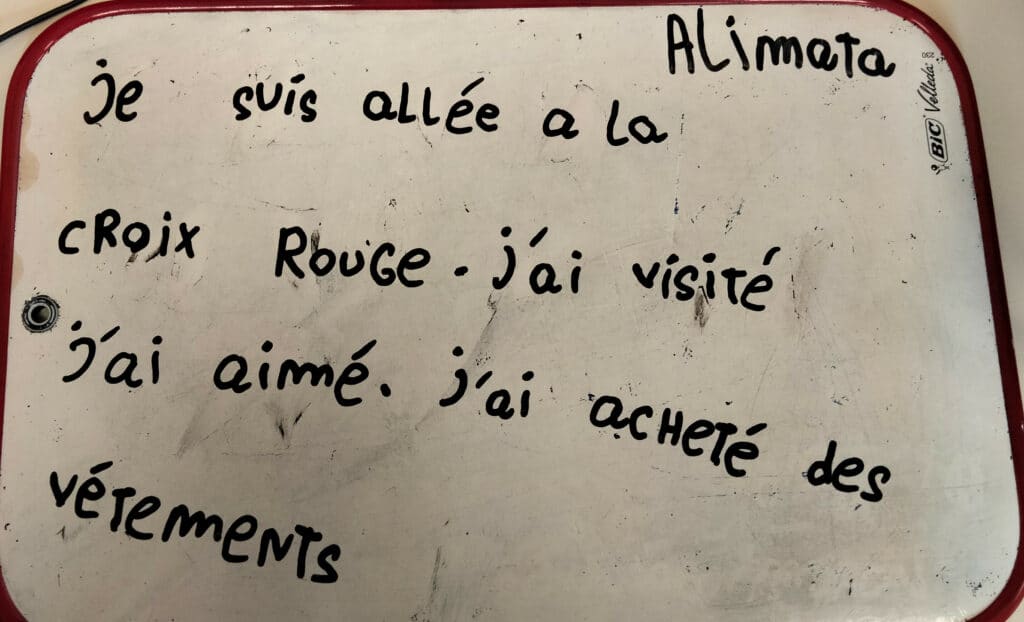 Alimata
je suis allée a la
croix Rouge. j'ai visité
j'ai aimé. j'ai acheté des
vétements
BIC Velleda